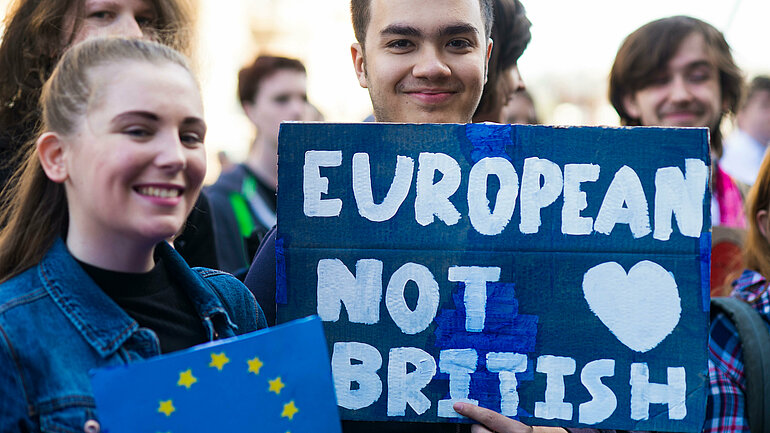 EUROPEAN
NOT
BRITISH